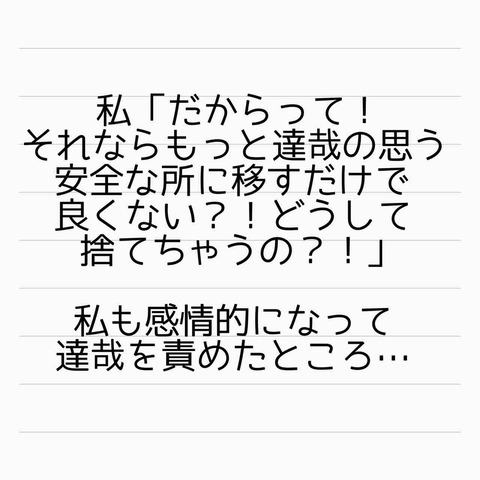 私「だからって！
それならもっと達哉の思う
安全な所に移すだけで
良くない？！どうして
捨てちゃうの？！」
私も感情的になって
達哉を責めたところ…